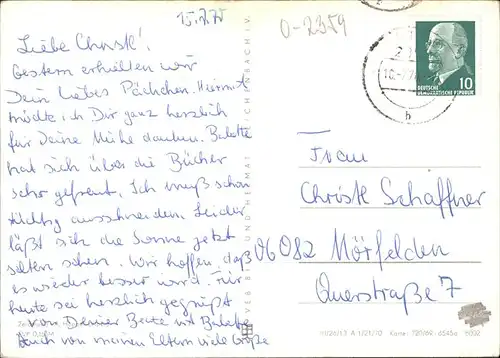 15.7.71
0-2359
Liebe Christl!
Gestern erhielten wir
Dein liebes Päckchen. Hiermit
möchte ich Dir ganz herzlich
für Deine Mühe danken. Babette
hat sich über die Bücher
sehr gefreut. Ich muß schon
tüchtig ausschneidern. Leider
läßt sich die Sonne jetzt
selten sehen. Wir hoffen, daß
es wieder besser wird. Für
heute sei herzlich gegrüßt
von Deiner Beate mit Babette
Auch von meinen Eltern viele Grüße
10
DEUTSCHE
DEMOKRATISCHE REPUBLIK
Frau
Christl Schaffner
06082 Mörfelden
Querstraße 7
VERLAG UND HEIMAT REICHENBACH I. V.
III/26/13 A 1/21/10 Karte: 720/69